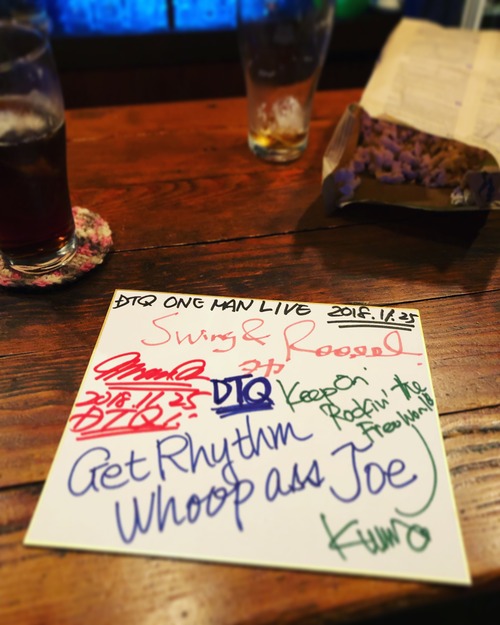 DTQ ONE MAN LIVE 2018.11.25
Swing &
2018.11.25
DTQ
DTQ
Keep On
Rockin' the
Free World
Get Rhythm
Whoop ass Joe